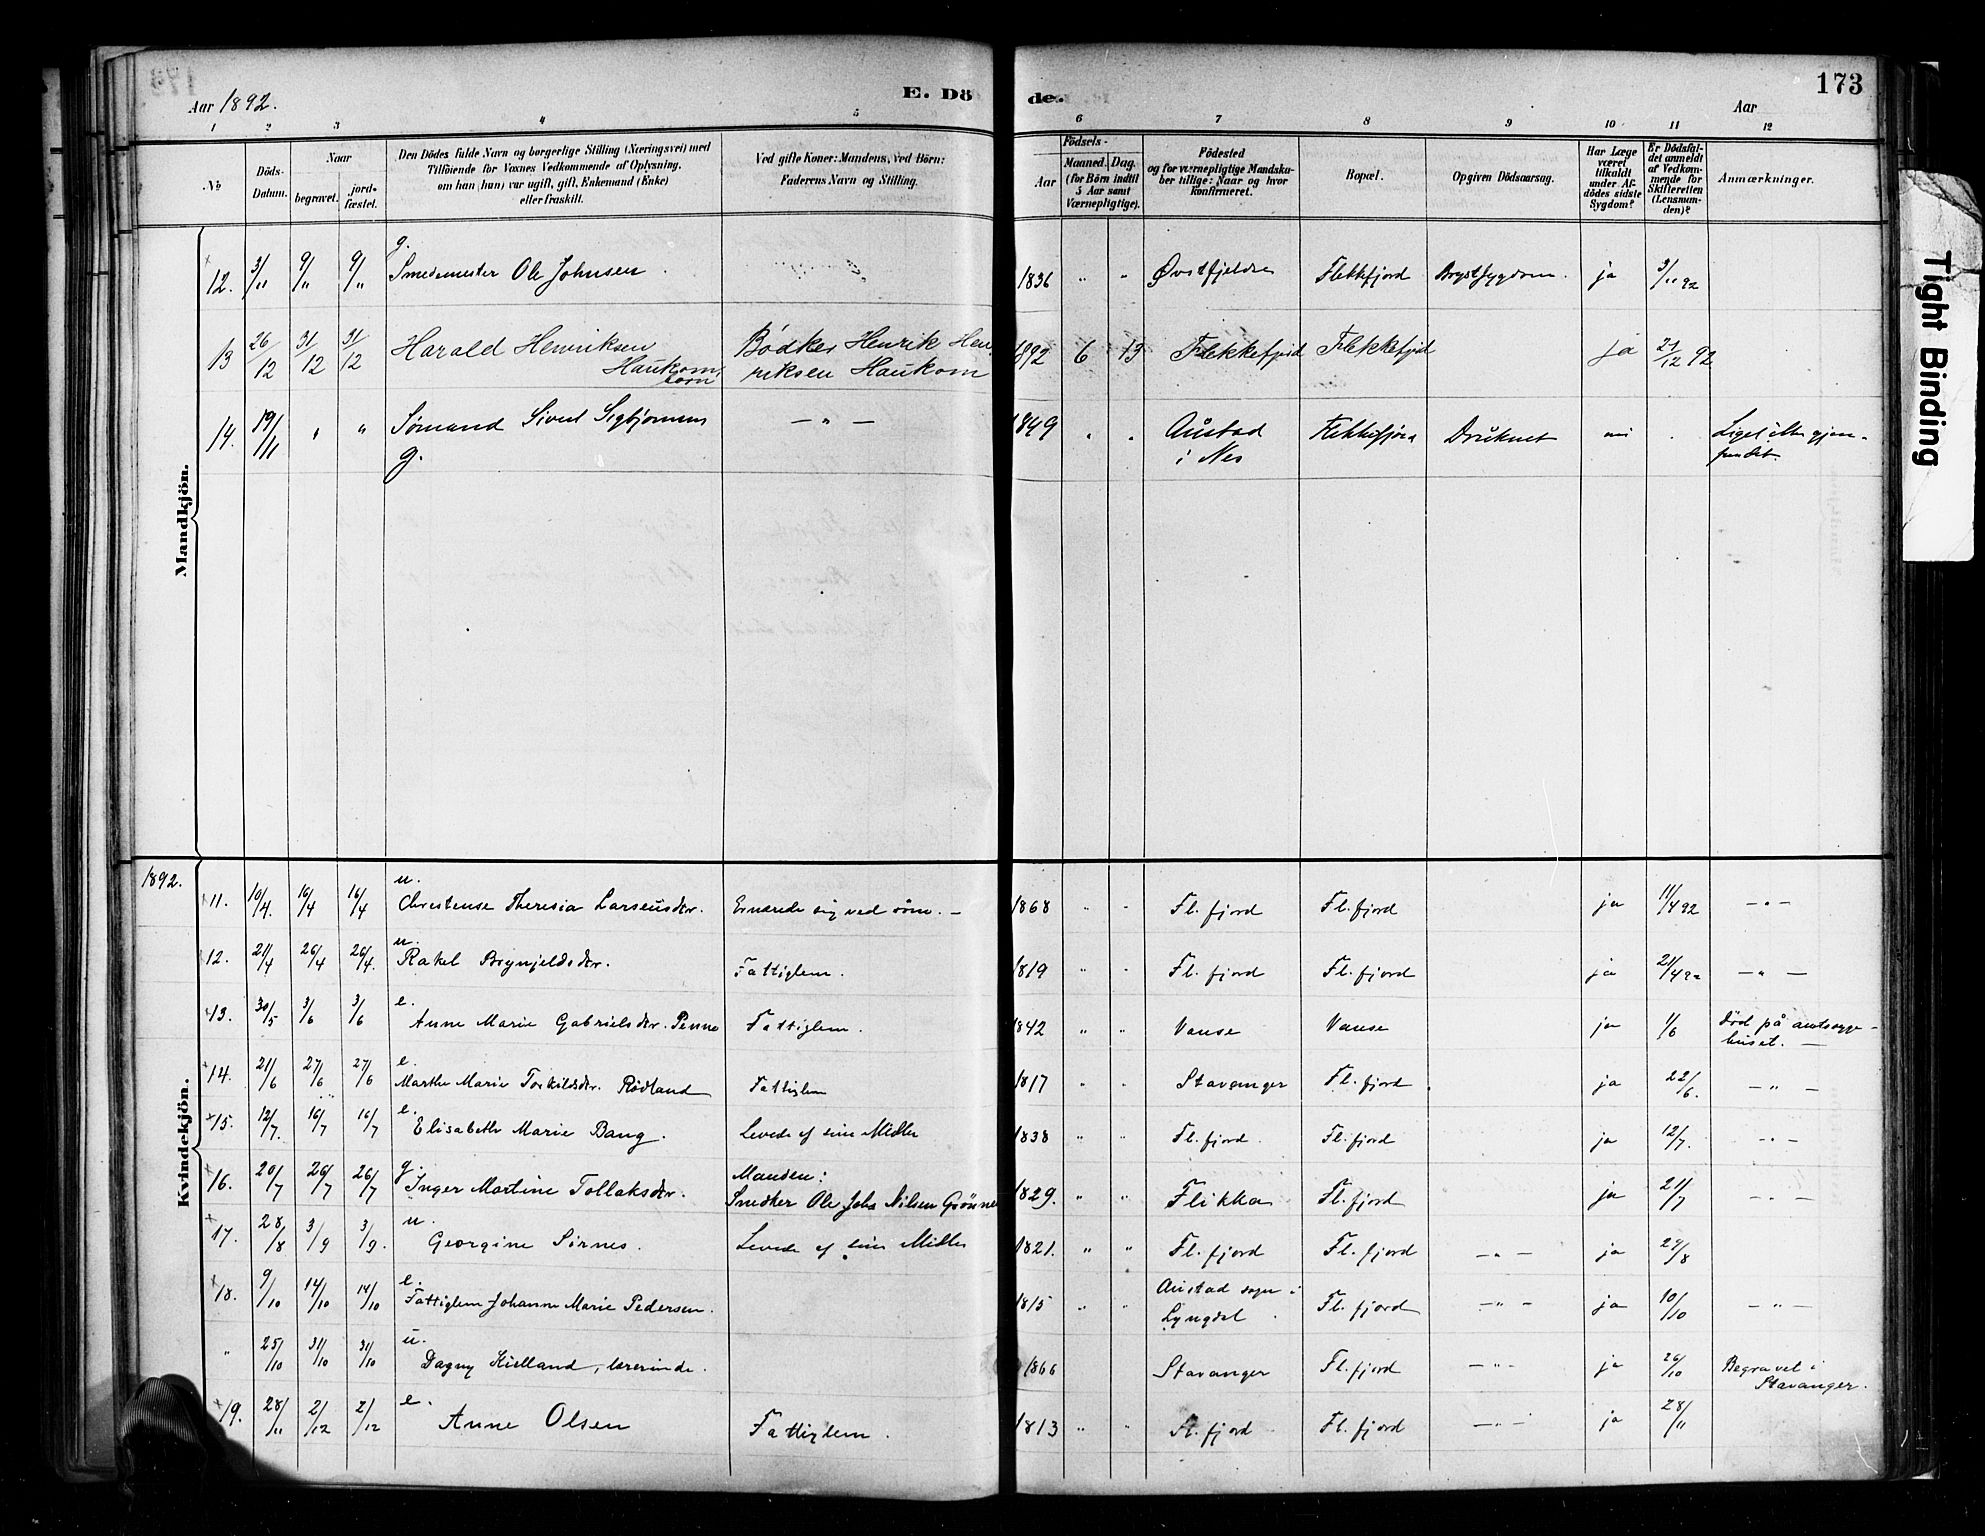 Aar 1892.
E. Dö
de.
Aar
173
1 2 3 4 5 6 7 8 9 10 11 12
No
Döds-Datum.
Naar
begravet.
jord-fæstet.
Den Dödes fulde Navn og borgerlige Stilling (Næringsvei) med
Tilföiende for Voxnes Vedkommende af Oplysning,
om han (hun) var ugift, gift, Enkemand (Enke)
eller fraskilt.
Ved gifte Koner: Mandens, ved Börn:
Faderens Navn og Stilling.
Födsels-
Aar
Maaned. Dag.
(for Börn indtil
5 Aar samt
Værnepligtige).
Födested
og for værnepligtige Mandska-
ber tillige: Naar og hvor
konfirmeret.
Bopæl.
Opgiven Dödsaarsag.
Har Læge
været
tilkaldt
under Af-
dödes sidste
Sygdom?
Er Dödsfal-
det anmeldt
af Vedkom-
mende for
Skifteretten
(Lensman-
den)?
Anmærkninger.
Mandkjön.
g.
12. 3/11 9/11 9/11 Smedemester Ole Johnsen. 1836 " " Flekkefjord Brystsygdom. ja 3/11 92
13 26/12 31/12 31/12 Harald Henriksen Bödker Henrik Hen 1892 6 13 Flekkefjord Flekkefjord ja 27/12 92
Haukom, riksen Haukom
barn
14. 19/11 " " Sömand Sivert Sigbjörnsen — " — 1849 " " Austad Flekkefjord Druknet nei Liget ikke gjen-
g. i Nes fundet.
Kvindekjön.
1892.
u.
11. 10/4. 16/4 16/4 Christense Theresia Larsensdtr. Ernærede sig ved söm. — 1868 " " Fl. fjord Fl. fjord ja 11/4 92 — " —
u.
12. 21/4 26/4 26/4. Rakel Brynjeldsdtr. Fattiglem. 1819 " " Fl. fjord Fl. fjord ja 21/4 92 — " —
e.
13. 30/5 3/6 3/6 Anne Marie Gabrielsdtr. Penne Fattiglem. 1842 " " Vanse Vanse ja 1/6 död på amtssyge-
huset. —
e.
14. 21/6 27/6 27/6 Marthe Marie Torkildsdtr. Rödland Fattiglem 1817 " " Stavanger Fl. fjord. ja 22/6. — " —
e.
15. 12/7. 16/7 16/7 Elisabeth Marie Bang. Levede af sine Midler 1838 " " Fl. fjord. Fl. fjord ja 12/7. — " —
g. Manden:
16. 20/7 26/7 26/7 Inger Martine Tollaksdtr. Snedker Ole Johs Nilsen Grönne 1829. " " Flikka Fl. fjord ja 21/7 — " —
u.
17. 28/8 3/9 3/9. Georgine Sirnes. Levede af sine Midler 1821. " " Fl. fjord Fl. fjord — " — ja 29/8
e. Austad sogn i
18. 9/10 14/10 14/10 Fattiglem Johanne Marie Pedersen. 1815 " " Lyngdal. Fl. fjord — " — ja 10/10 — " —
u.
" 25/10 31/10 31/10 Dagny Kielland, lærerinde. 1866 Stavanger Fl. fjord — " — ja 26/10 Begravet i
Stavanger.
e.
19. 28/11 2/12 2/12 Anne Olsen Fattiglem. 1813 " " Fl. fjord Fl. fjord — " — ja 28/11
Tight Binding